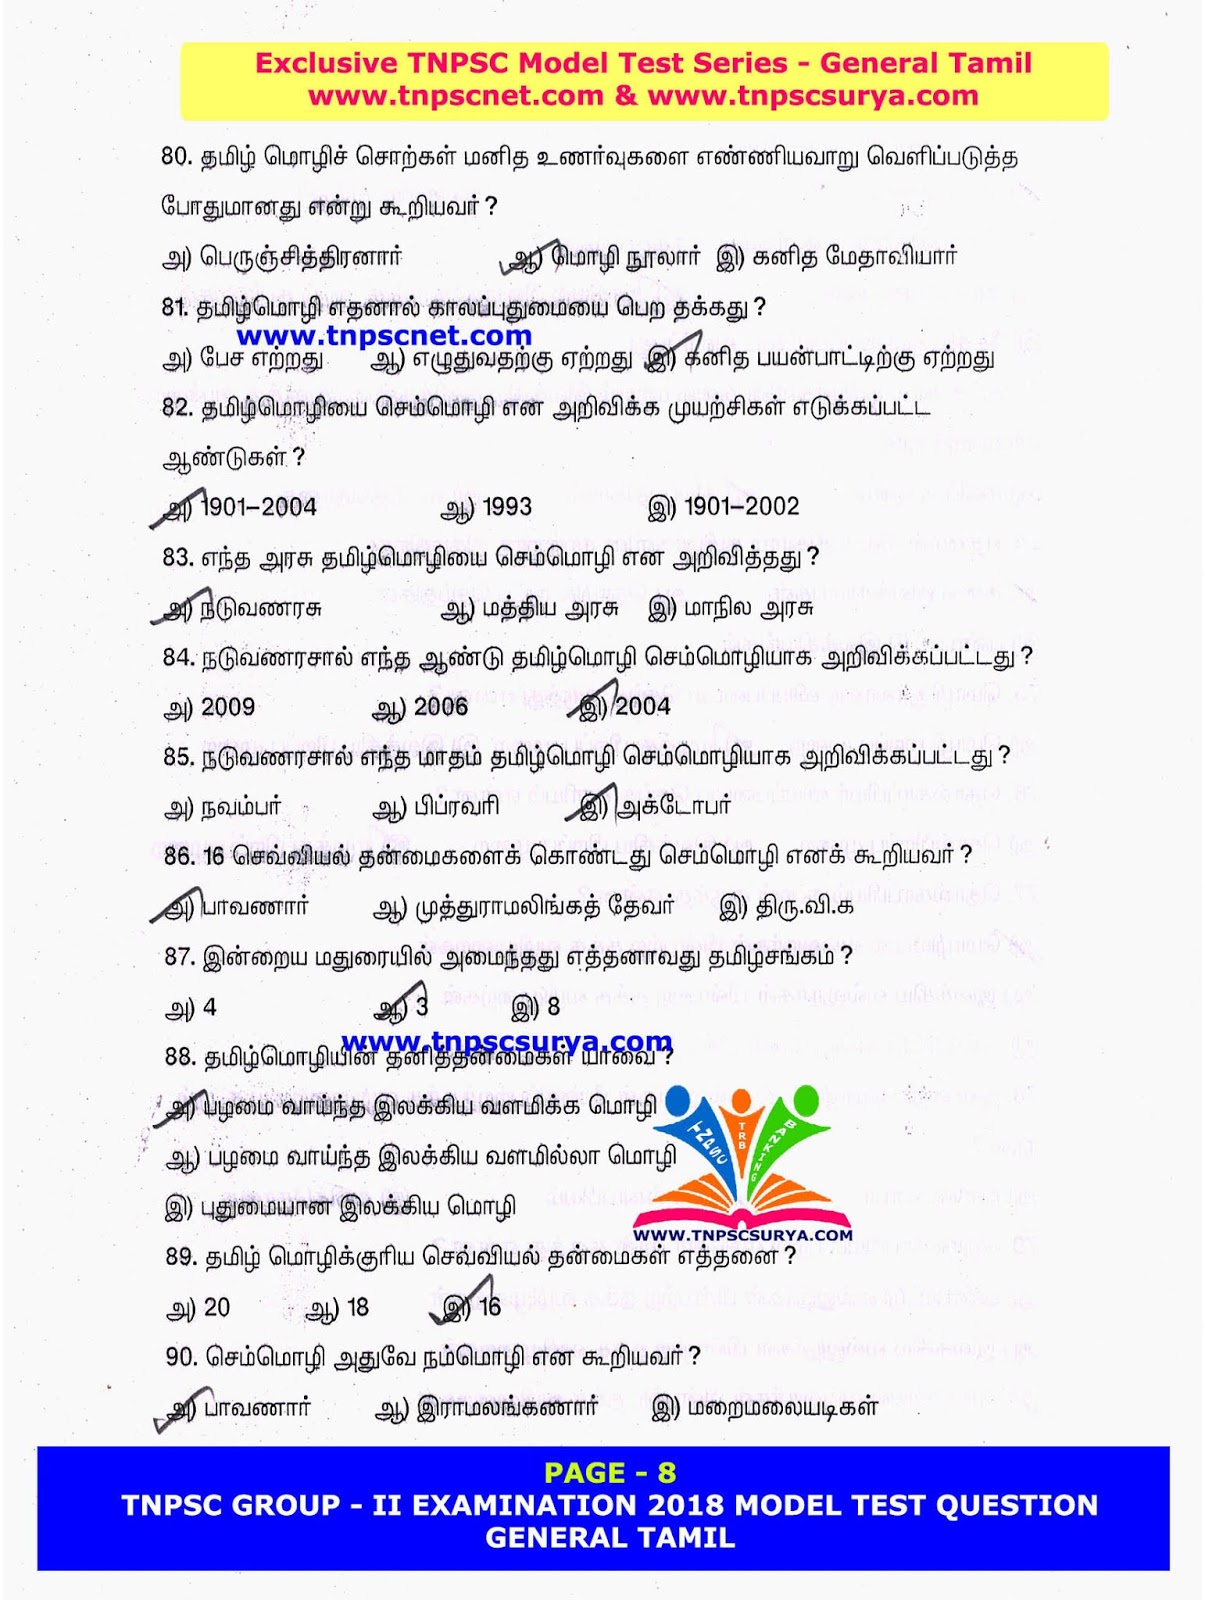 Exclusive TNPSC Model Test Series - General Tamil
www.tnpscnet.com & www.tnpscsurya.com
80. தமிழ் மொழிச் சொற்கள் மனித உணர்வுகளை எண்ணியவாறு வெளிப்படுத்த
போதுமானது என்று கூறியவர் ?
அ) பெருஞ்சித்திரனார் ஆ) மொழி நூலார் இ) கனித மேதாவியார்
81. தமிழ்மொழி எதனால் காலப்புதுமையை பெற தக்கது ?
www.tnpscnet.com
அ) பேச எற்றது ஆ) எழுதுவதற்கு ஏற்றது இ) கனித பயன்பாட்டிற்கு ஏற்றது
82. தமிழ்மொழியை செம்மொழி என அறிவிக்க முயற்சிகள் எடுக்கப்பட்ட
ஆண்டுகள் ?
அ) 1901–2004 ஆ) 1993 இ) 1901–2002
83. எந்த அரசு தமிழ்மொழியை செம்மொழி என அறிவித்தது ?
அ) நடுவணரசு ஆ) மத்திய அரசு இ) மாநில அரசு
84. நடுவணரசால் எந்த ஆண்டு தமிழ்மொழி செம்மொழியாக அறிவிக்கப்பட்டது ?
அ) 2009 ஆ) 2006 இ) 2004
85. நடுவணரசால் எந்த மாதம் தமிழ்மொழி செம்மொழியாக அறிவிக்கப்பட்டது ?
அ) நவம்பர் ஆ) பிப்ரவரி இ) அக்டோபர்
86. 16 செவ்வியல் தன்மைகளைக் கொண்டது செம்மொழி எனக் கூறியவர் ?
அ) பாவணார் ஆ) முத்துராமலிங்கத் தேவர் இ) திரு.வி.க
87. இன்றைய மதுரையில் அமைந்தது எத்தனாவது தமிழ்சங்கம் ?
அ) 4 ஆ) 3 இ) 8
www.tnpscsurya.com
88. தமிழ்மொழியின் தனித்தன்மைகள் யாவை ?
அ) பழமை வாய்ந்த இலக்கிய வளமிக்க மொழி
ஆ) பழமை வாய்ந்த இலக்கிய வளமில்லா மொழி
இ) புதுமையான இலக்கிய மொழி
TNPSC
TRB
BANKING
WWW.TNPSCSURYA.COM
89. தமிழ் மொழிக்குரிய செவ்வியல் தன்மைகள் எத்தனை ?
அ) 20 ஆ) 18 இ) 16
90. செம்மொழி அதுவே நம்மொழி என கூறியவர் ?
அ) பாவணார் ஆ) இராமலங்கணார் இ) மறைமலையடிகள்
PAGE - 8
TNPSC GROUP - II EXAMINATION 2018 MODEL TEST QUESTION
GENERAL TAMIL